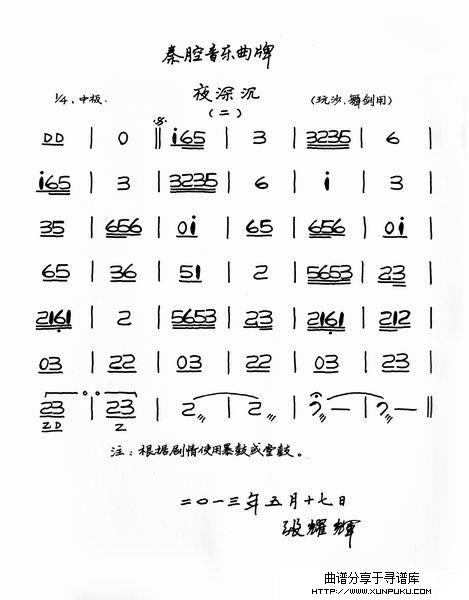 秦腔音乐曲牌
夜深沉
1/4、中板. (二) (玩沙、舞剑用)
DD | 0 ‖ i165 | 3 | 3235 | 6 |
i65 | 3 | 3235 | 6 | i | 3 |
35 | 656 | 0i | 65 | 656 | 0i |
65 | 36 | 51 | 2 | 5653 | 23 |
2161 | 2 | 5653 | 23 | 2161 | 212 |
03 | 22 | 03 | 22 | 03 | 23 |
23 | 23 | 2 | 2 | 2 — | 2 — ‖
ZD Z
注：根据剧情使用暴鼓或堂鼓。
二〇一三年五月十七日
张耀辉
曲谱分享于寻谱库
HTTP://WWW.XUNPUKU.COM